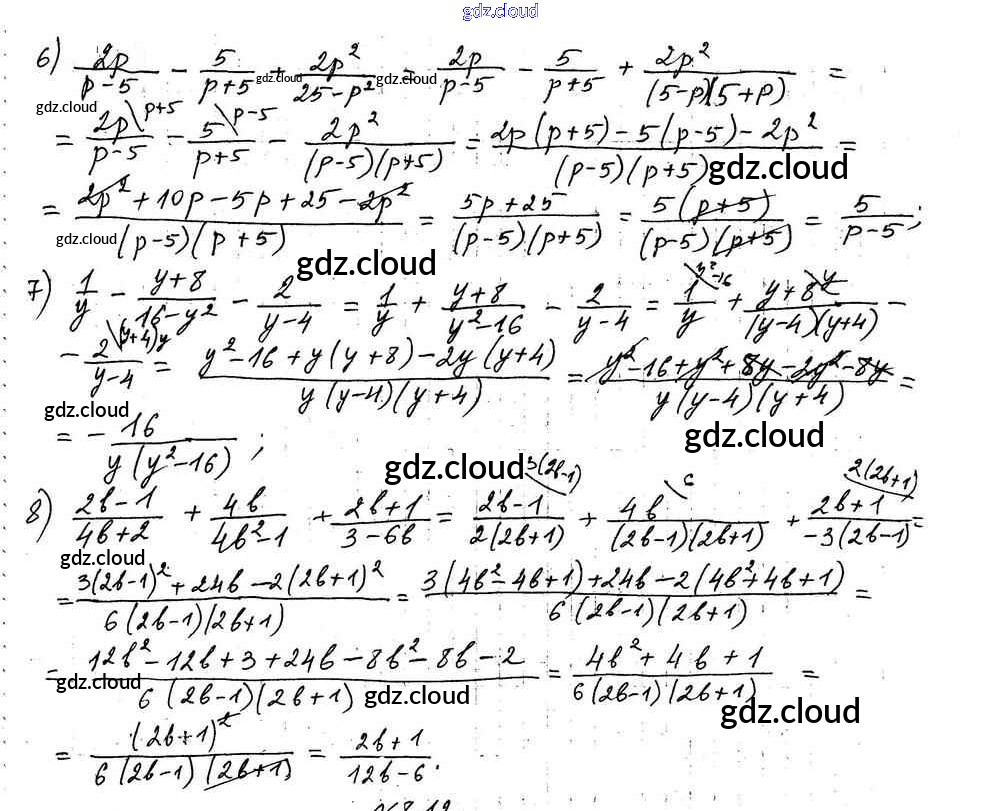 gdz.cloud
6) 2p/(p-5) - 5/(p+5) + 2p²/(25-p²) = 2p/(p-5) - 5/(p+5) + 2p²/((5-p)(5+p)) =
gdz.cloud gdz.cloud
= 2p\p+5/(p-5) - 5\p-5/(p+5) - 2p²/((p-5)(p+5)) = (2p(p+5)-5(p-5)-2p²)/((p-5)(p+5)) =
gdz.cloud gdz.cloud
= (2p²+10p-5p+25-2p²)/((p-5)(p+5)) = (5p+25)/((p-5)(p+5)) = 5(p+5)/((p-5)(p+5)) = 5/(p-5);
gdz.cloud gdz.cloud
7) 1/y - (y+8)/(16-y²) - 2/(y-4) = 1/y + (y+8)/(y²-16) - 2/(y-4) = 1\y²-16/y + (y+8)\y/((y-4)(y+4)) -
- 2\(y+4)y/(y-4) = (y²-16+y(y+8)-2y(y+4))/(y(y-4)(y+4)) = (y²-16+y²+8y-2y²-8y)/(y(y-4)(y+4)) =
gdz.cloud gdz.cloud
= - 16/(y(y²-16));
gdz.cloud
8) (2b-1)/(4b+2) + 4b/(4b²-1) + (2b+1)/(3-6b) = (2b-1)\3(2b-1)/(2(2b+1)) + 4b\6/((2b-1)(2b+1)) + (2b+1)\2(2b+1)/(-3(2b-1)) =
gdz.cloud
= (3(2b-1)²+24b-2(2b+1)²)/(6(2b-1)(2b+1)) = (3(4b²-4b+1)+24b-2(4b²+4b+1))/(6(2b-1)(2b+1)) =
= (12b²-12b+3+24b-8b²-8b-2)/(6(2b-1)(2b+1)) = (4b²+4b+1)/(6(2b-1)(2b+1)) =
gdz.cloud gdz.cloud gdz.cloud
= (2b+1)²/(6(2b-1)(2b+1)) = (2b+1)/(12b-6).